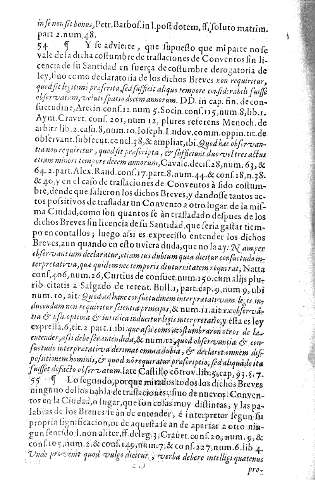 in sensisit bones, Petr. Barbos. in l. post dotem, ff. soluto matrim.
part. 2. num. 48.
54 ¶ Y se advierte, que supuesto que mi parte no se
vale de la dicha costumbre de traslaciones de Conventos sin li-
cencia de su Santidad en fuerça de costumbre derogatoria de
ley, sino como declaratoria de los dichos Breves non requiritur,
quod sit legitimè præscrita, sed sufficit aliquo tempore considerabili fuisse
observatam, velut spatio decem annorum. DD. in cap. fin. de con-
suetudine, Aretin cons. 21. num. 5. Socin. cons. 125. num. 8. lib. 1.
Aym. Cravet. cons. 201. num. 12. plures referens Menoch. de
arbitr. lib. 2. casu 8. num. 10. Ioseph. Ludov. comm. opin. tit. de
observant. subsecut. concl. 38. & ampliat. ibi. Quod hæc observan-
tia non requiritur, quod sit præscripta, & sufficiunt duo vel tres actus
etiam minori tempore decem annorum, Cavalc. decis. 28. num. 63. &
64. 2. part. Alex. Raud. cons. 17. part. 8. num. 44. & cons. 18. n. 38.
& 40. y en el caso de traslaciones de Conventos à sido costum-
bre, desde que salieron los dichos Breves, y dandose tantos ac-
tos positivos de trasladar un Convento a otro lugar de la mis-
ma Ciudad, como son quantos se àn trasladado despues de los
dichos Breves sin licencia de su Santidad, que seria gastar tiem-
po en contallos; luego assi es expressillo entender los dichos
Breves, aun quando en esto uviera duda, que no la ay: Nam per
observantiam declaratur, etiam in dubium quia dicitur consuetudo in-
terpretativa, quæ quidem nec temporis diuturnitatem requirat, Natta
cons. 406. num. 26. Curtius de consuet. num. 150. cum alijs plu-
rib. citatis à Salgado de retent. Bull. 1. part. cap. 9. num. 9. ubi
num. 10. ait: Quod ad hanc consuetudinem interpretativam legis in-
ducendam non requiritur scientia principis, & num. 11. ait: ex observã-
tia & usu opinio & iudicio inducitur legis interpretatio, y esta es ley
expressa, 6. tit. 2. part. 1. ibi: que assi como acostumbraron otros de la
entender, assi debe ser entendida, & num. 12. quod observantia & con-
suetudo interpretativa dirimat omnia dubia, & declarat omnem dis-
positionem hominis, & quod non requiratur præscriptio, sed aliquâdo ita
fuisse dista observatum. late Castillo cõtrov. lib. 5. cap. 93. §. 7.
55 ¶ Lo segundo, porque mirados todos los dichos Breves
ninguno dellos habla de traslaciones, sino de nuevos Conven-
tos en la Ciudad, o lugar, que son cosas muy distintas, y las pa-
labras de los Breves se àn de entender, è interpretar segun su
propria significacion, no de aquesta se àn de apartar a otro nin-
gun sentido, l. non aliter, ff. deleg. 3. Cravet. cons. 20. num. 9. &
cons. 107. num. 2. & cons. 149. num. 7. & cons. 227. num. 6. lib. 4.
Unde provenit quod vulgo dicitur, verba debere intelligi quatenus
pro-